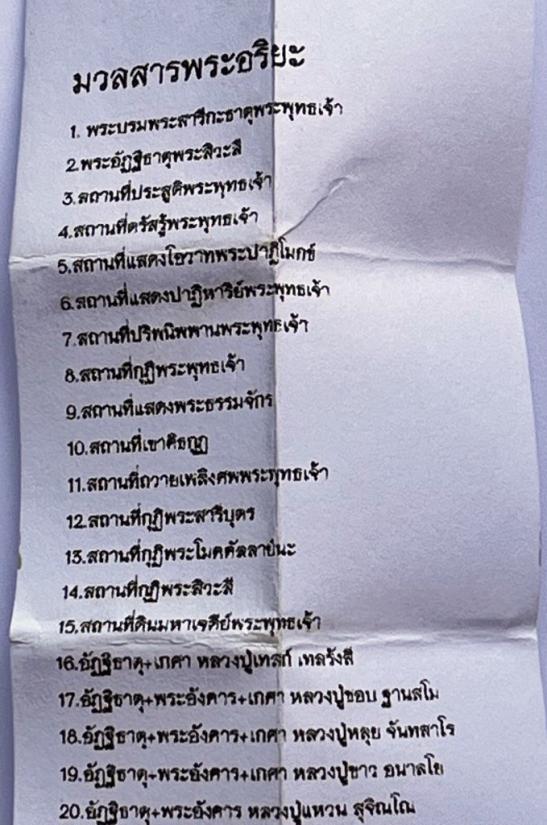 มวลสารพระอริยะ
1. พระบรมพระสารีกะธาตุพระพุทธเจ้า
2.พระอัฏฐิธาตุพระสิวะลี
3.สถานที่ประสูติพระพุทธเจ้า
4.สถานที่ตรัสรู้พระพุทธเจ้า
5.สถานที่แสดงโอวาทพระปาฏิโมกข์
6.สถานที่แสดงปาฏิหาริย์พระพุทธเจ้า
7.สถานที่ปริพนิพพานพระพุทธเจ้า
8.สถานที่กุฏิพระพุทธเจ้า
9.สถานที่แสดงพระธรรมจักร
10.สถานที่เขาคิธกูฏ
11.สถานที่ถวายเพลิงศพพระพุทธเจ้า
12.สถานที่กุฏิพระสารีบุตร
13.สถานที่กุฏิพระโมคคัลลาย์นะ
14.สถานที่กุฏิพระสิวะลี
15.สถานที่ดินมหาเจดีย์พระพุทธเจ้า
16.อัฏฐิธาตุ+เกศา หลวงปู่เทสก์ เทสรังสี
17.อัฏฐิธาตุ+พระอังคาร+เกศา หลวงปู่ชอบ ฐานสโม
18.อัฏฐิธาตุ+พระอังคาร+เกศา หลวงปู่หลุย จันทสาโร
19.อัฏฐิธาตุ+พระอังคาร+เกศา หลวงปู่ขาว อนาลโย
20.อัฏฐิธาตุ+พระอังคาร หลวงปู่แหวน สุจิณโณ